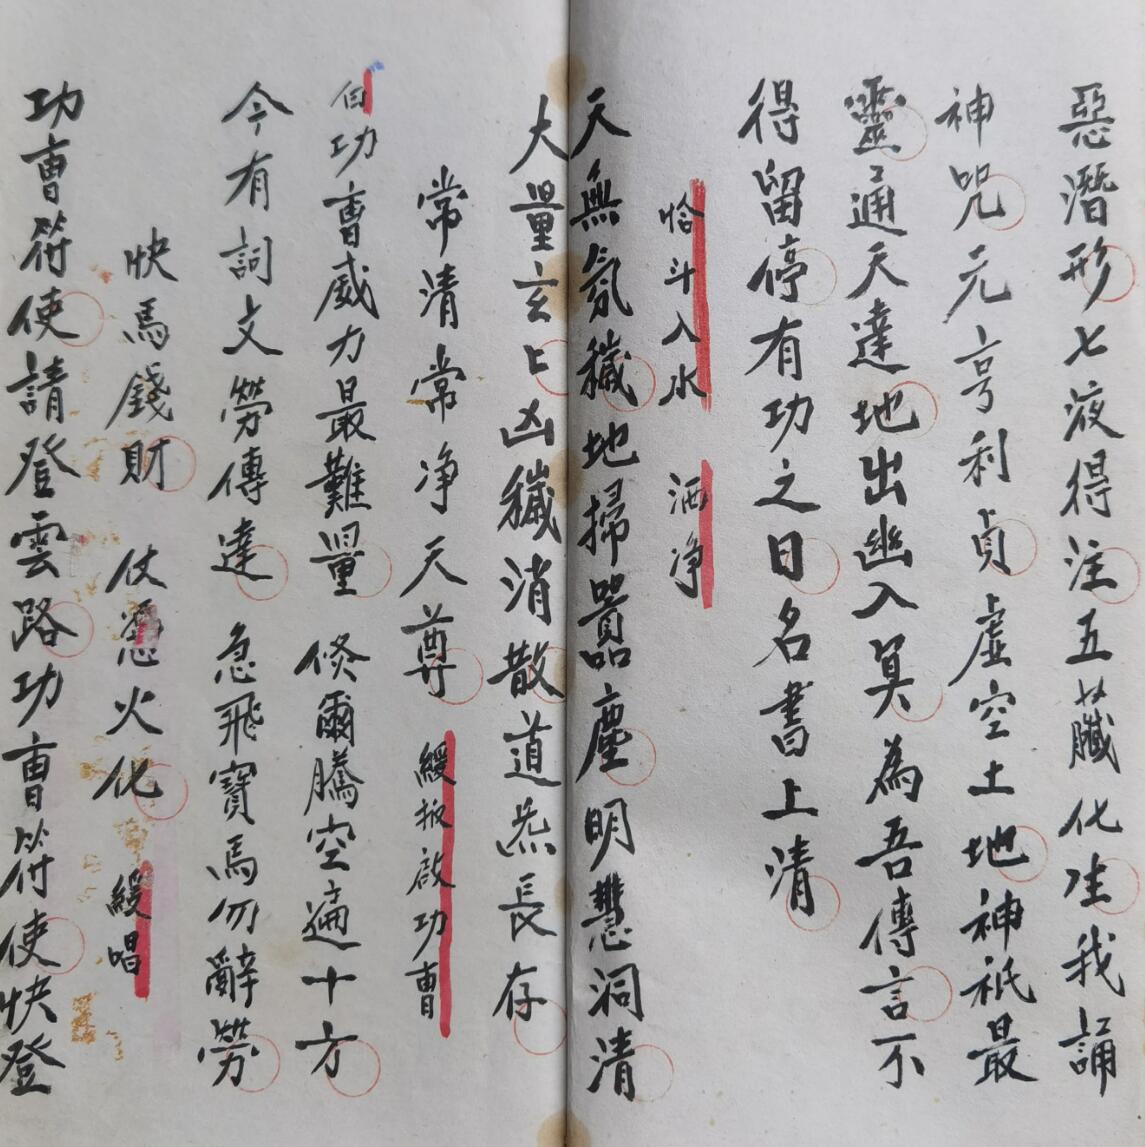 惡潛形七液得注五臟化生我誦
神咒元亨利貞虛空土地神祇最
靈通天達地出幽入冥為吾傳言不
得留停有功之日名書上清
恰斗入水 洒净
天無氛穢地掃囂塵明慧洞清
大量玄上凶穢消散道炁長存
常清常净天尊 緩扳啟功曹
白功曹威力最難量 倏爾騰空遍十方
今有詞文勞傳達 急飛寶馬勿辭勞
快馬錢財 仗憑火化 緩唱
功曹符使請登雲路功曹符使快登